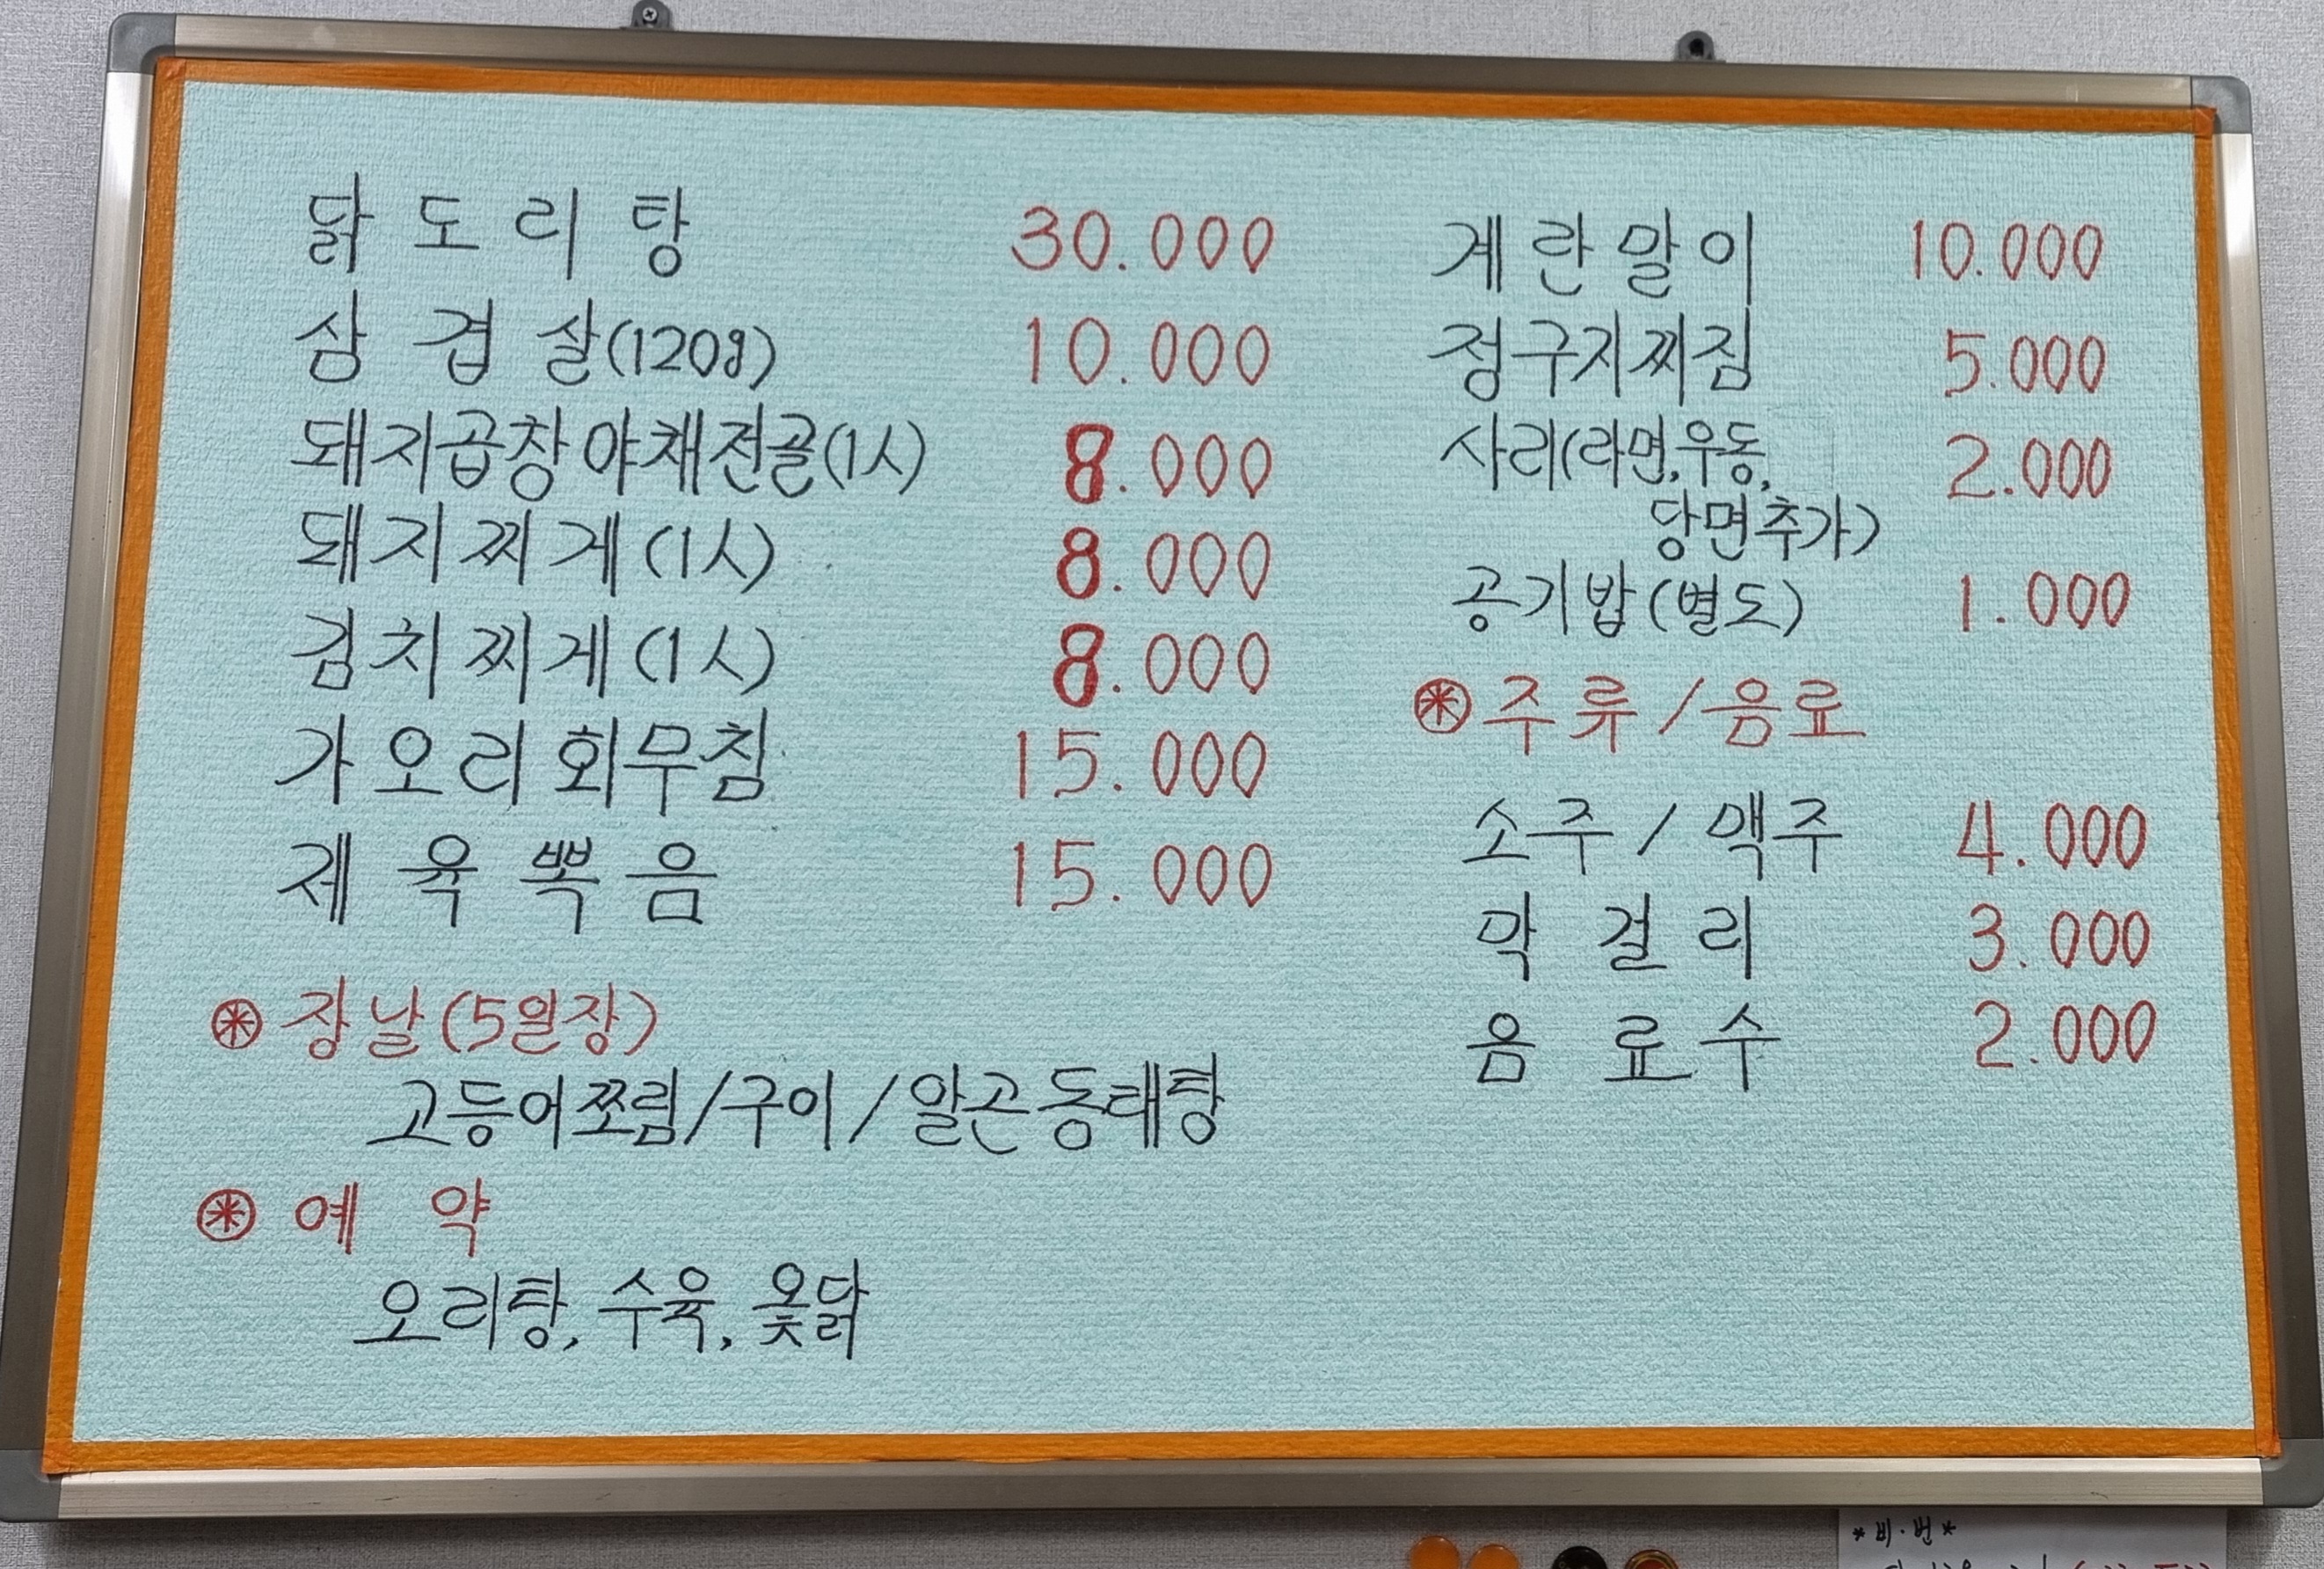 닭도리탕 30.000
삼겹살(120g) 10.000
돼지곱창야채전골(1人) 8.000
돼지찌게(1人) 8.000
김치찌게(1人) 8.000
가오리회무침 15.000
제육뽁음 15.000
장날(5일장)
고등어쪼림/구이/알곤동태탕
예약
오리탕, 수육, 옻닭
계란말이 10.000
정구지찌짐 5.000
사리(라면,우동, 2.000
당면추가)
공기밥(별도) 1.000
주류/음료
소주/맥주 4.000
막걸리 3.000
음료수 2.000
*비·번*